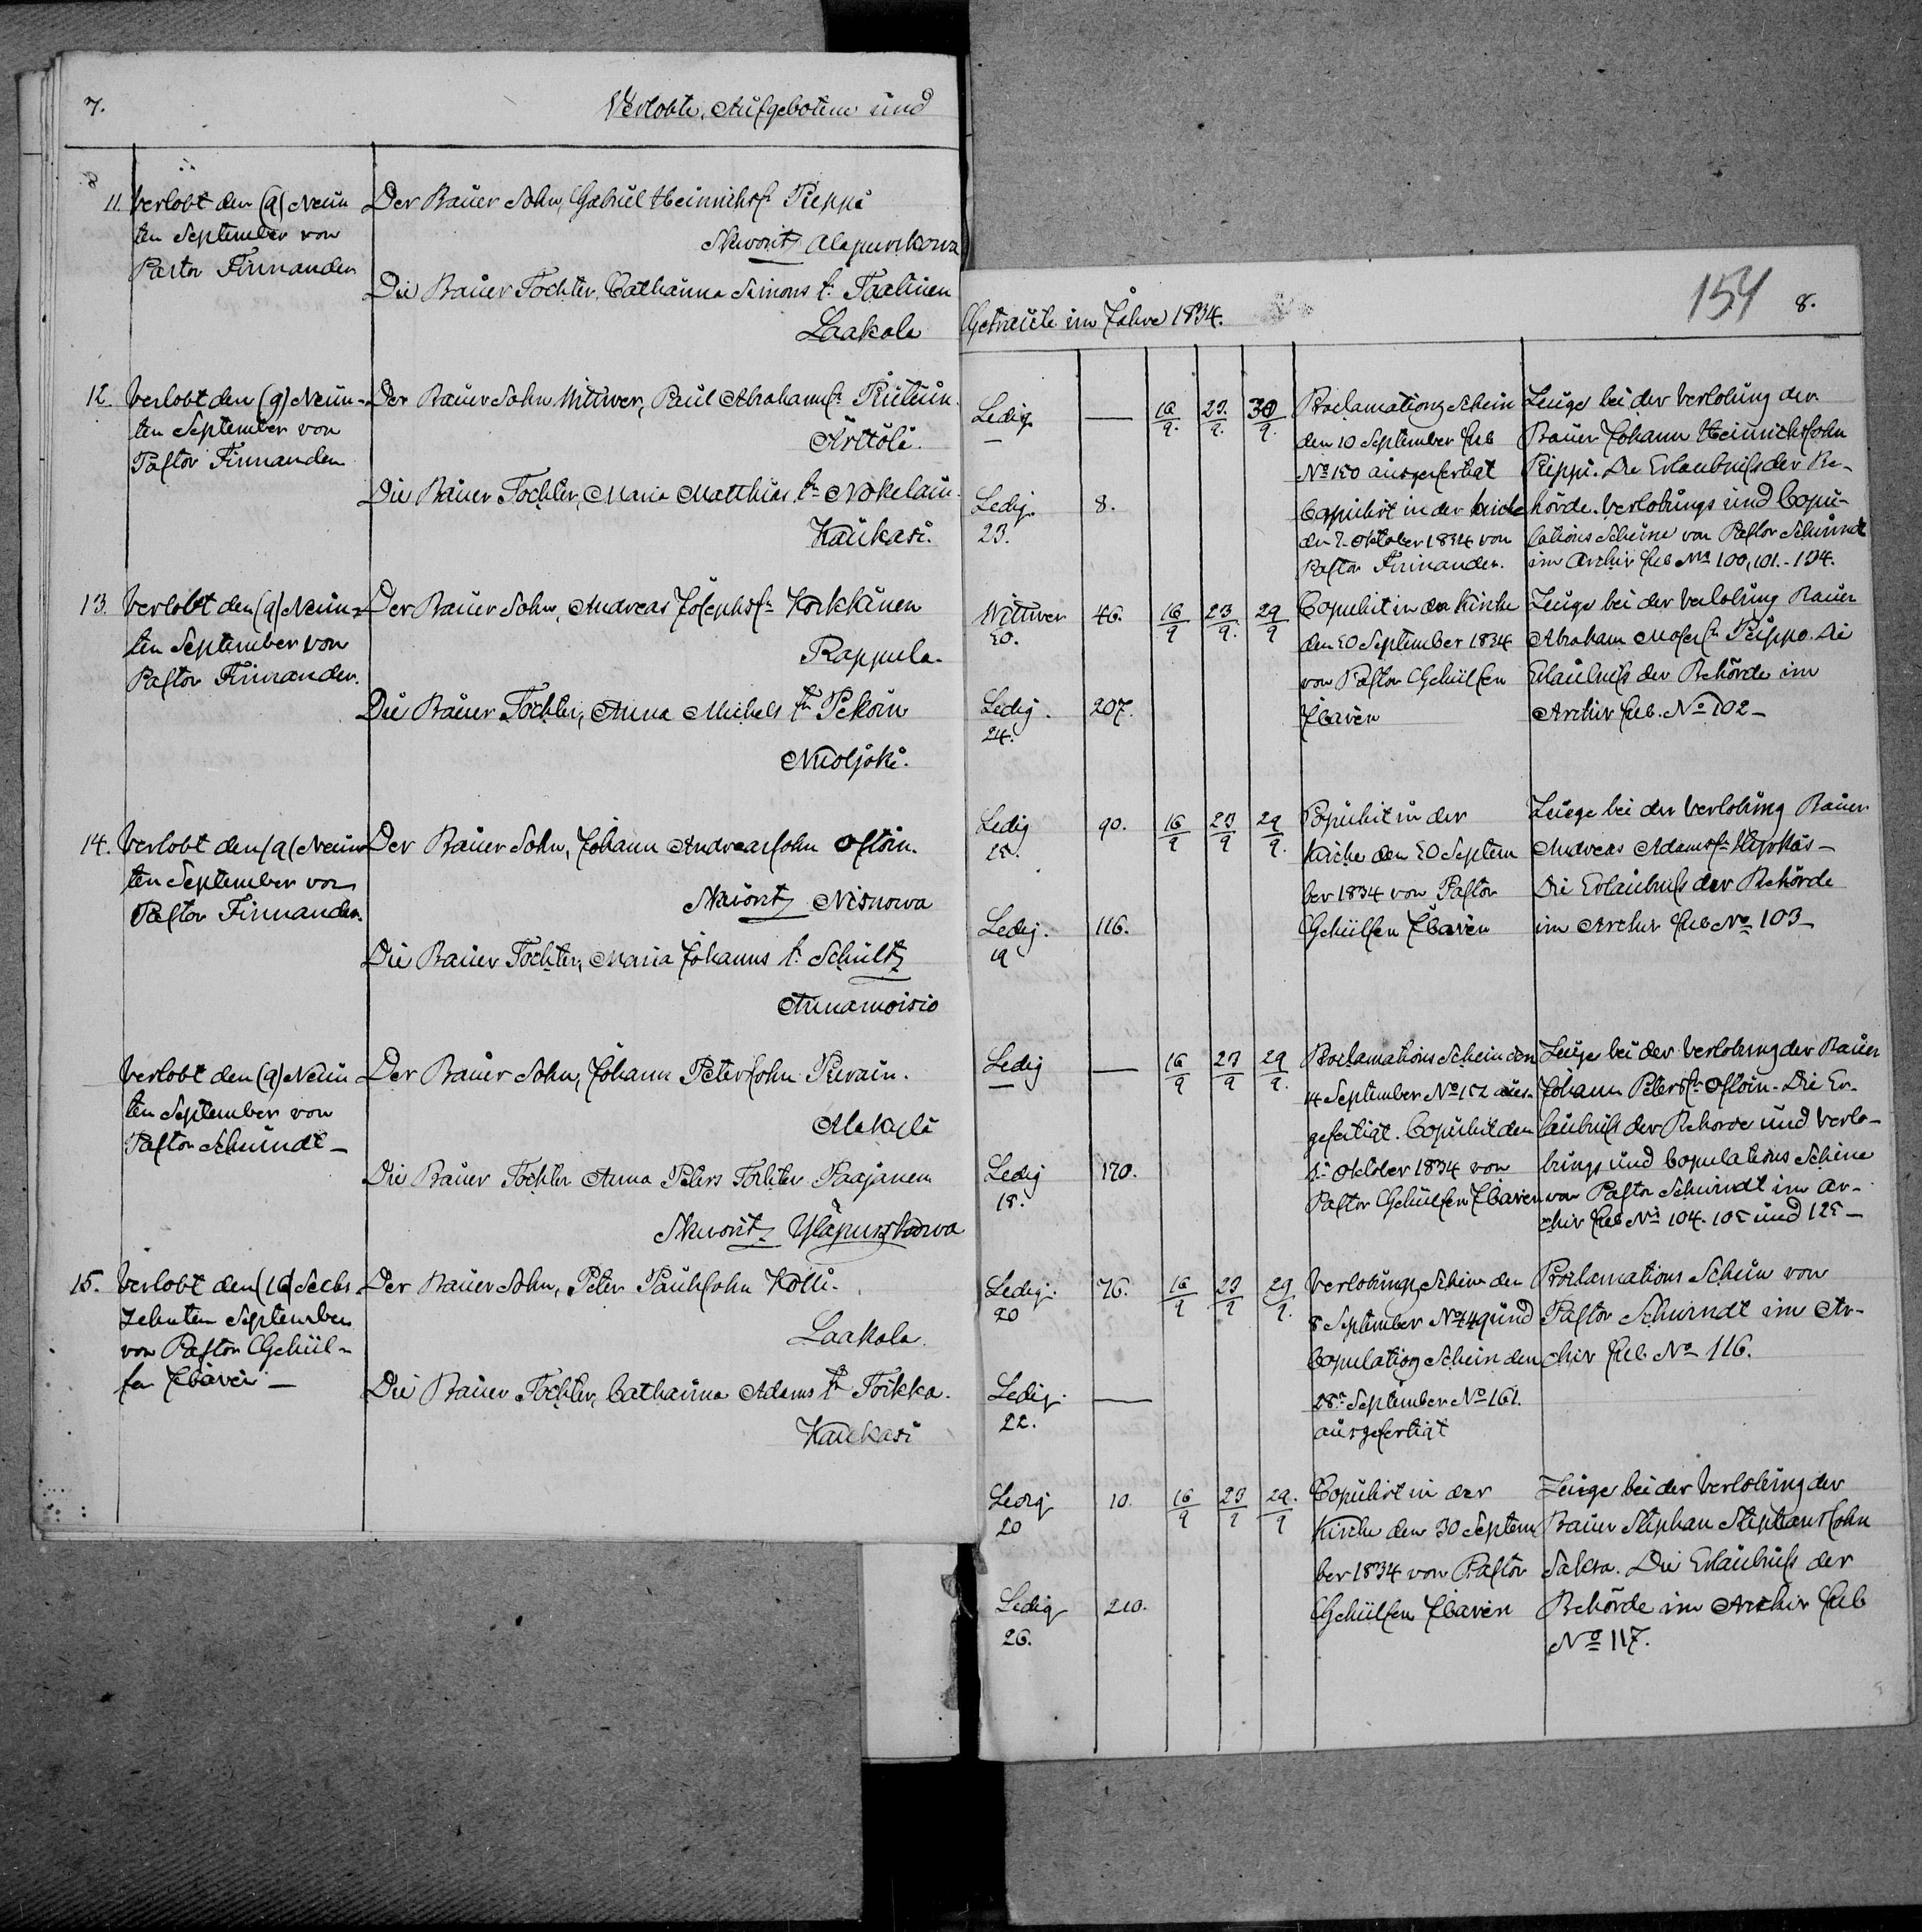 7.
Verlobte, Aufgebotene und
11. Verlobt den (9) Neun
ten September von
Pastor Finnander
Der Bauer Sohn, Gabriel Heinrichs S. Pieppi
Skworitz Alapurskowa
Die Bauer Tochter, Catharina Simons t. Taatinen
Laakola
12. Verlobt den (9) Neun-
ten September von
Pastor Finnander
Der Bauer Sohn Wittwer, Paul Abrahams
Die Bauer Tochter, Maria Matthias tr
Kaukasi.
13. Verlobt den (9) Neun-
ten September von
Pastor Finnander.
Der Bauer Sohn, Andreas Josephs Korkkinen
Rappula.
Die Bauer Tochter, Anna Michels tr Pekoin
14. Verlobt den (9) Neun
ten September von
Pastor Finnander.
Der Bauer Sohn, Johann Andreassohn Ostoin.
Skworitz Niskowa
Die Bauer Tochter, Maria Johanns t. Schultz
Annamoisio
Verlobt den (9) Neun
ten September von
Pastor Schwindt -
Der Bauer Sohn, Johann Petersohn
Alakylä
Die Bauer Tochter Anna Peters Tochter Paajanen
Skworitz Yläpurskowa
15. Verlobt den (16) Sechs
zehnten September
von Pastor Gehül-
fen
Der Bauer Sohn, Peter Paulssohn Kolli.
Laakola.
Die Bauer Tochter, Catharina Adams tr Toikka.
Kaukasi
154 8.
Getraute im Jahre 1834.
Ledig — 16/9. 23./9. 30/9.
Proclamations Schein
den 10 September sub
No 150 ausgefertigt
Copulirt in der Kirche
den 7. Oktober 1834 von
Pastor Finnander.
Zeuge bei der Verlobung der
Bauer Johann Heinrichssohn
Pieppi. Die Erlaubniß der Be-
hörde. Verlobungs und Copu-
lations Scheine von Pastor Schwindt
im Archiv sub No 100, 101. - 134.
Ledig. 8.
23.
Wittwer 46. 16/9 23/9. 29/9
50.
Copulirt in der Kirche
den 30 September 1834
von Pastor Gehülfen
Zeuge bei der Verlobung Bauer
Abraham Moses S. Die
Erlaubniß der Behörde im
Archiv sub. No 102 -
Ledig. 207.
24.
Ledig 90. 16/9 23/9 29/9.
25.
Copulirt in der
Kirche den 30 Septem
ber 1834 von Pastor
Gehülfen
Zeuge bei der Verlobung Bauer
Andreas Adams
Die Erlaubniß der Behörde
im Archiv sub No 103 -
Ledig. 116.
19
Ledig — 16/9 23/9 29/9.
Proclamations Schein den
14 September No 152 aus-
gefertigt. Copulirt den
Oktober 1834 von
Pastor Gehülfen
Zeuge bei der Verlobung der Bauer
Johann Peters Ostoin. Die Er-
laubniß der Behörde und Verlo-
bungs und Copulations Scheine
von Pastor Schwindt im Ar-
chiv sub No 104. 105 und 125 -
Ledig 170.
18.
Ledig. 76. 16/9 23/9 29/9.
20
Verlobungs Schein den
8 September No 149 und
Copulations Schein den
28. September No 161.
ausgefertigt
Proclamations Schein von
Pastor Schwindt im Ar-
chiv sub. No 116.
Ledig. —
22.
Ledig 10. 16/9 23/9 29./9
20
Copulirt in der
Kirche den 30 Septem
ber 1834 von Pastor
Gehülfen
Zeuge bei der Verlobung der
Bauer Stephan Stephanssohn
Saksa. Die Erlaubniß der
Behörde im Archiv sub
No 117.
Ledig 210.
26.